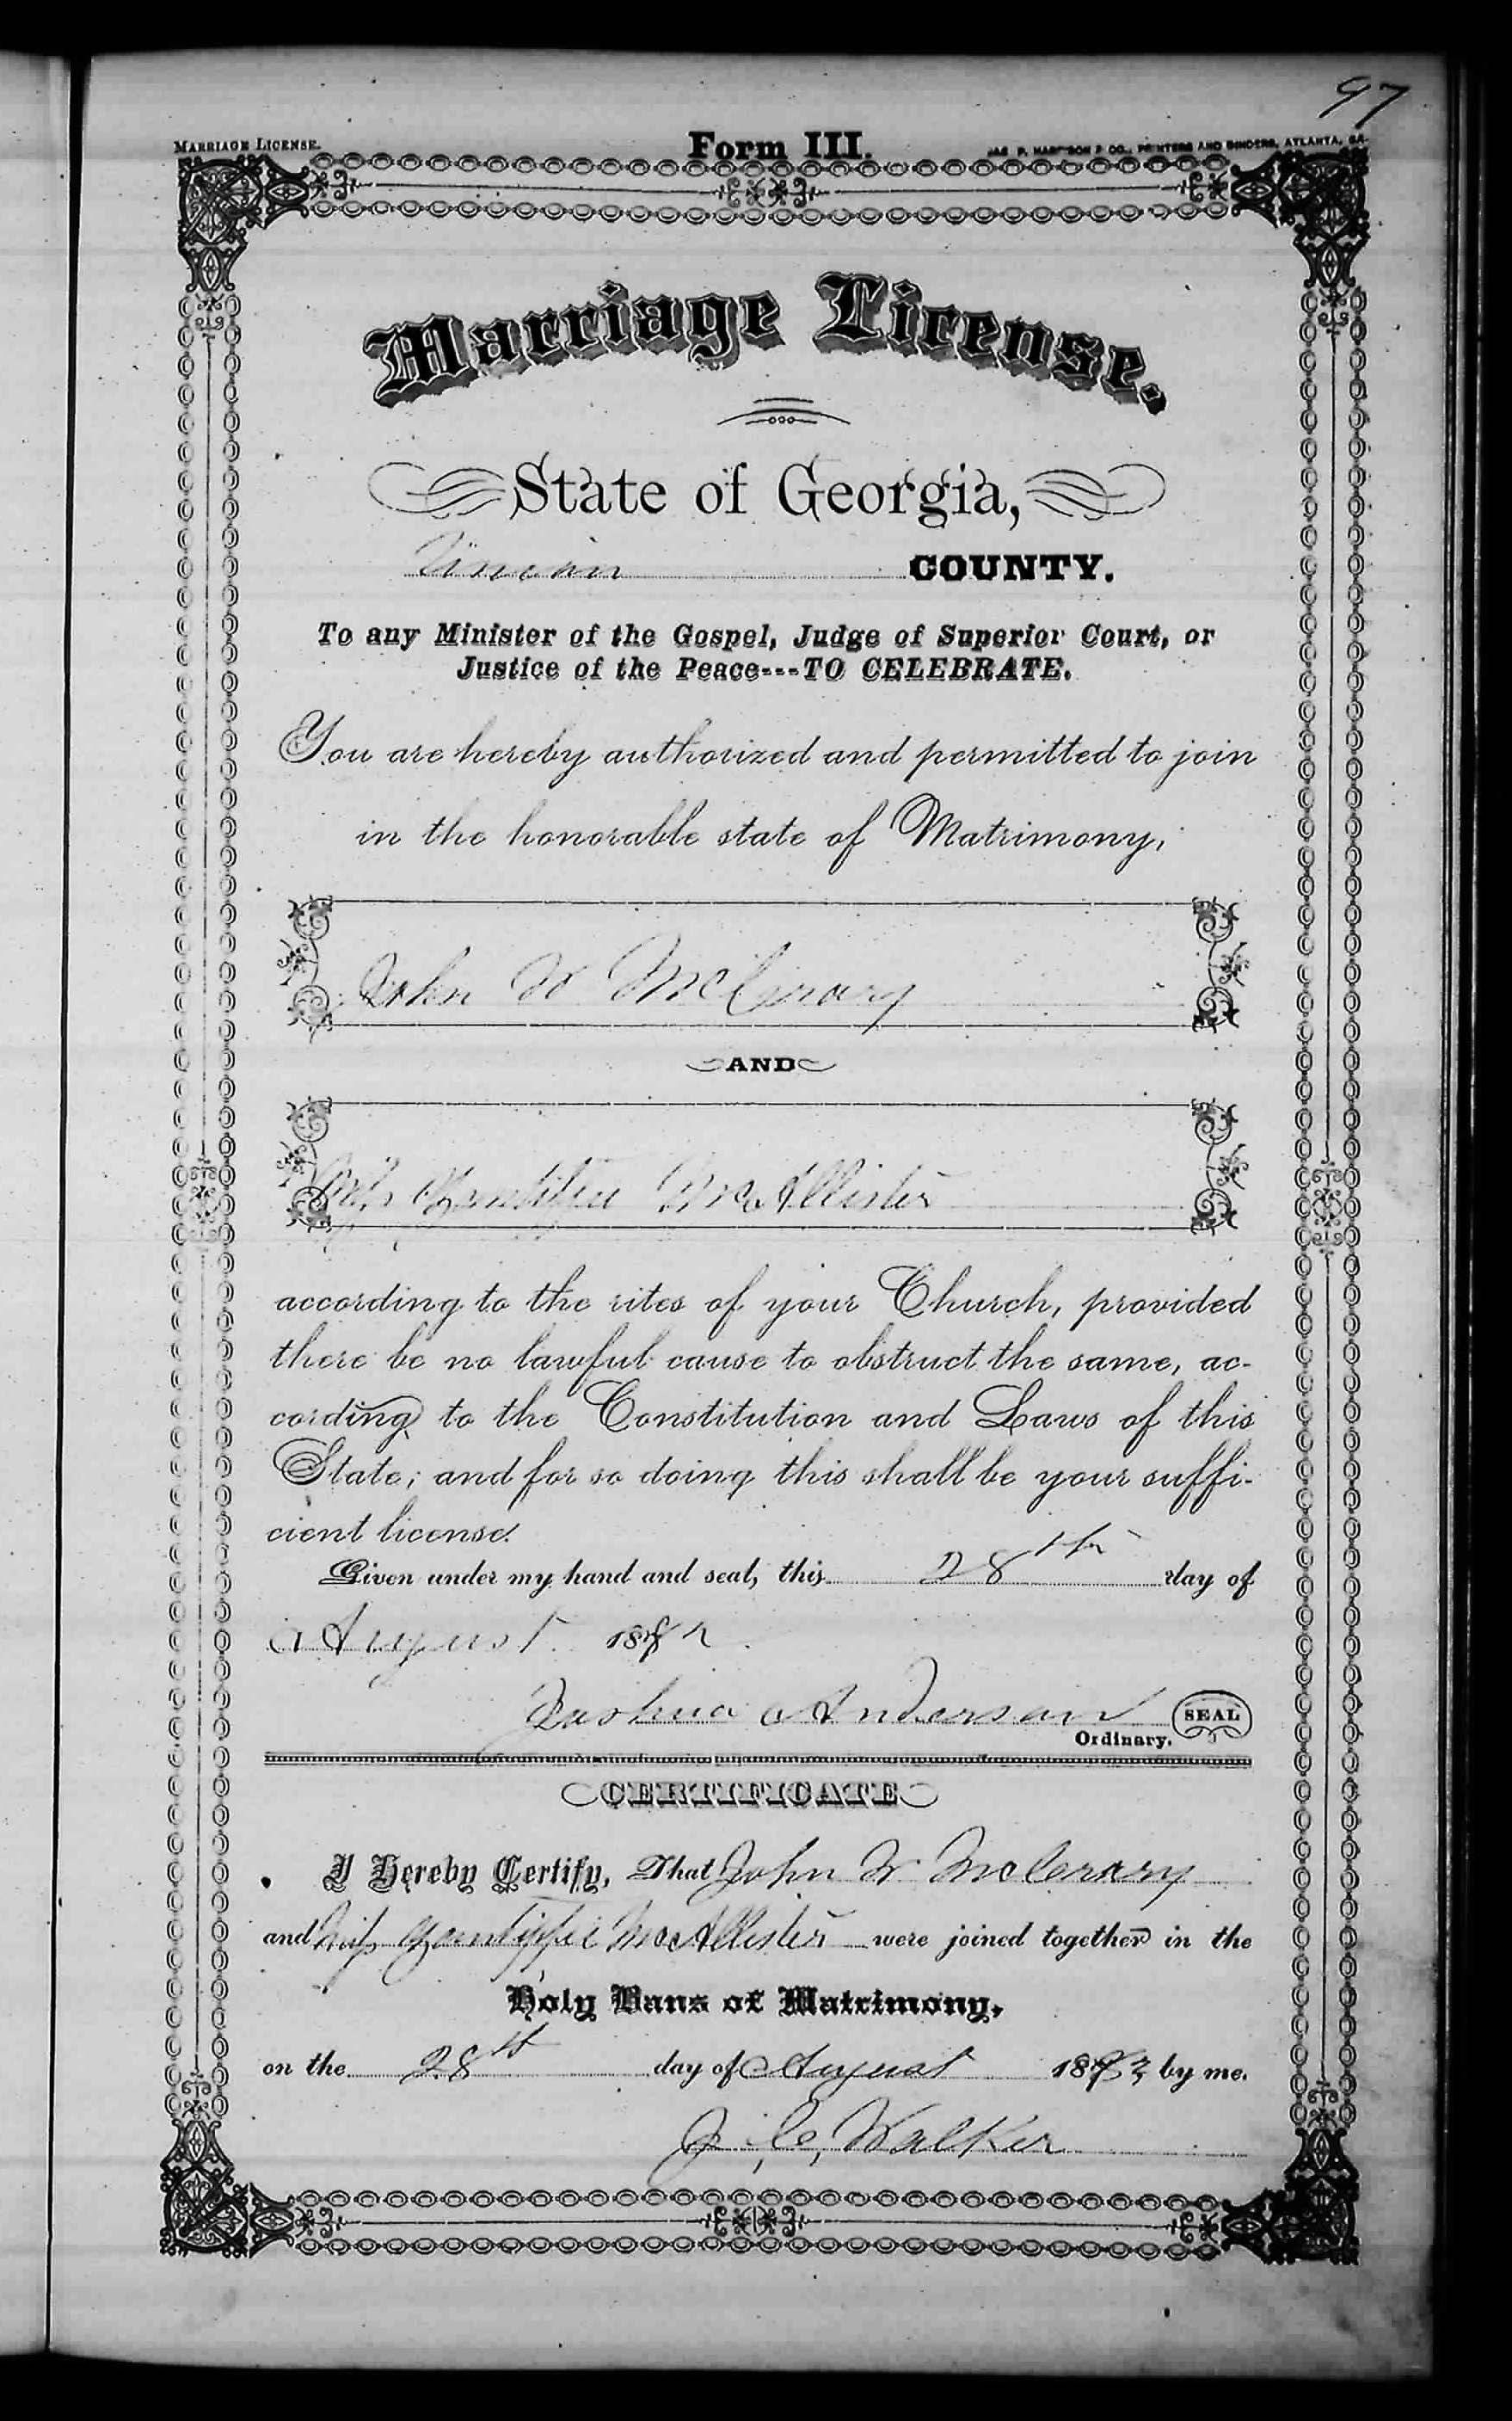 97
MARRIAGE LICENSE. Form III. JAS. P. HARRISON & CO., PRINTERS AND BINDERS, ATLANTA, GA.
Marriage License.
State of Georgia,
Union COUNTY.
To any Minister of the Gospel, Judge of Superior Court, or
Justice of the Peace---TO CELEBRATE.
You are hereby authorized and permitted to join
in the honorable state of Matrimony,
John W McCrary
AND
Miss McAllister
according to the rites of your Church, provided
there be no lawful cause to obstruct the same, ac-
cording to the Constitution and Laws of this
State; and for so doing this shall be your suffi-
cient license.
Given under my hand and seal, this 28th day of
August 1882
Joshua Anderson SEAL
Ordinary.
CERTIFICATE
I Hereby Certify, That John W McCrary
and Miss McAllister were joined together in the
Holy Bans of Matrimony,
on the 28th day of August 188 by me.
J. C. Walker